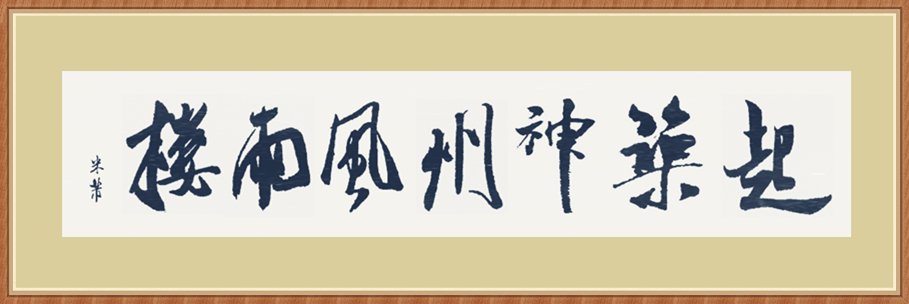 起築神州風雨樓
米芾